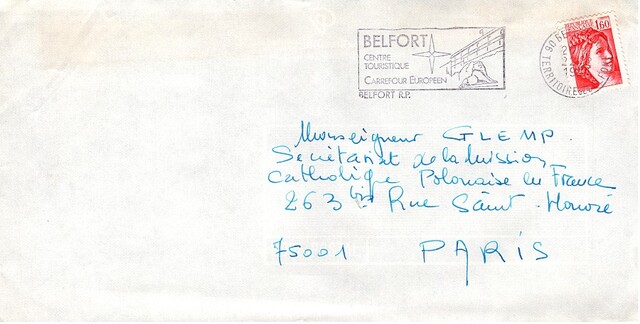 BELFORT
CENTRE
TOURISTIQUE
CARREFOUR EUROPEEN
BELFORT R.P.
1,60
90 TERRITOIRE DE
Monseigneur GLEMP.
Secrétariat de la Mission
Catholique Polonaise en France
263 bis Rue Saint-Honoré
75001 PARIS